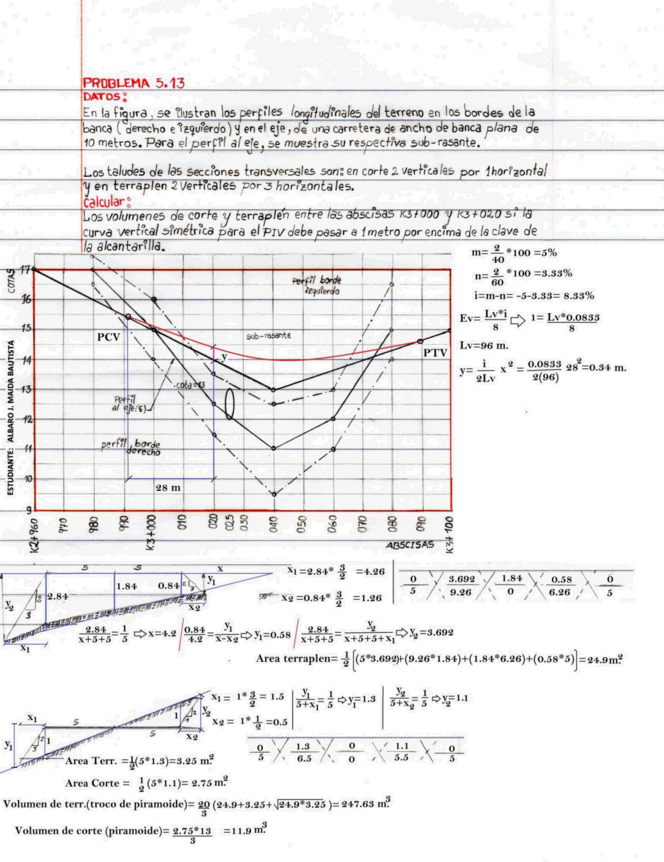 PROBLEMA 5.13
DATOS:
En la figura, se ilustran los perfiles longitudinales del terreno en los bordes de la
banca ( derecho e izquierdo) y en el eje, de una carretera de ancho de banca plana de
10 metros. Para el perfil al eje, se muestra su respectiva sub-rasante.
Los taludes de las secciones transversales son: en corte 2 verticales por 1 horizontal
y en terraplen 2 verticales por 3 horizontales.
Calcular:
Los volumenes de corte y terraplén entre las abscisas K3+000 y K3+020 si la
curva vertical simétrica para el PIV debe pasar a 1 metro por encima de la clave de
la alcantarilla.
m= 2/40 *100 =5%
n= 2/60 *100 =3.33%
i=m-n= -5-3.33= 8.33%
Ev= Lv*i/8 ⇨ 1= Lv*0.0833/8
Lv=96 m.
y= i/2Lv x² = 0.0833/2(96) 28² =0.34 m.
COTAS
17
16
15
14
13
12
11
10
9
ESTUDIANTE: ALBARO J. MAIDA BAUTISTA
Perfil borde
izquierdo
PCV
sub-rasante
y
PTV
cota=13
Perfil
al eje(E)
perfil borde
derecho
28 m
K2+960
970
980
990
K3+000
010
020
025
030
040
050
060
070
080
090
K3+100
ABSCISAS
5 5 x
2.84 1.84 0.84 y1
y2
x1 x2
x1=2.84* 3/2 =4.26
x2 =0.84* 3/2 =1.26
0/5 3.692/9.26 1.84/0 0.58/6.26 0/5
2.84/x+5+5 = 1/5 ⇨ x=4.2 / 0.84/4.2 = y1/x-x2 ⇨ y1=0.58 / 2.84/x+5+5 = y2/x+5+5+x1 ⇨ y2=3.692
Area terraplen= 1/2 [(5*3.692)+(9.26*1.84)+(1.84*6.26)+(0.58*5)]=24.9m²
x1= 1* 3/2 = 1.5
x2 = 1* 1/2 =0.5
y1/5+x1 = 1/5 ⇨ y=1.3
y2/5+x2 = 1/5 ⇨ y2=1.1
x1 5 1 2 y2
y1 2 3 1 5 x2
0/5 1.3/6.5 0/0 1.1/5.5 0/5
Area Terr. =1/2(5*1.3)=3.25 m²
Area Corte = 1/2 (5*1.1)= 2.75 m²
Volumen de terr.(troco de piramoide)= 20/3 (24.9+3.25+√24.9*3.25 )= 247.63 m³
Volumen de corte (piramoide)= 2.75*13/3 =11.9 m³